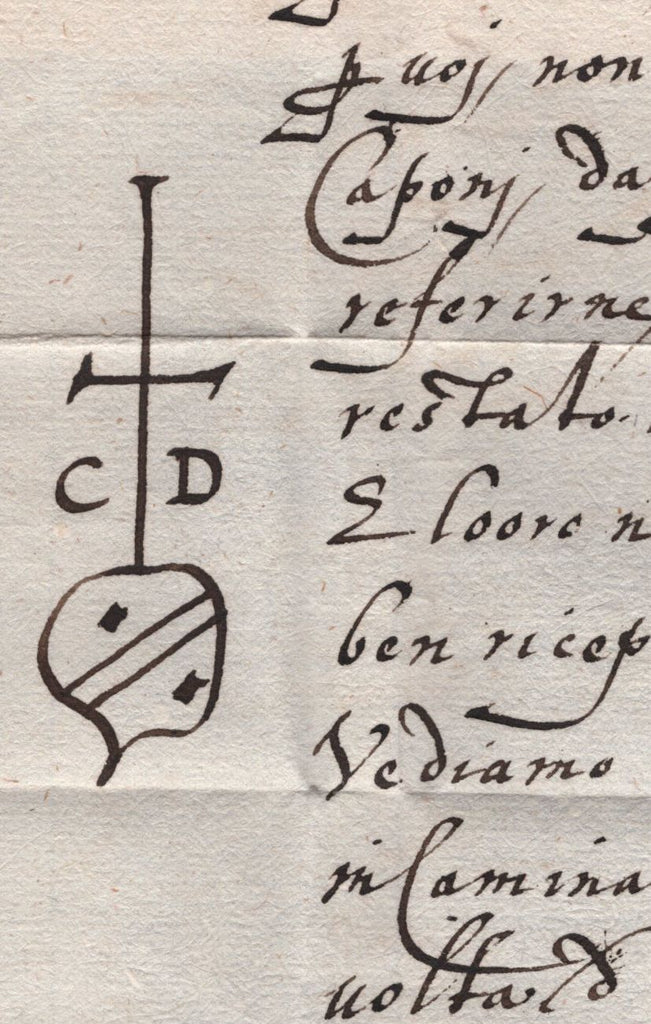 ꝑ uoj, non
Caponj, da
referirne
restato
C D
E looro n
ben ricep
Vediamo
in Camina
uolta